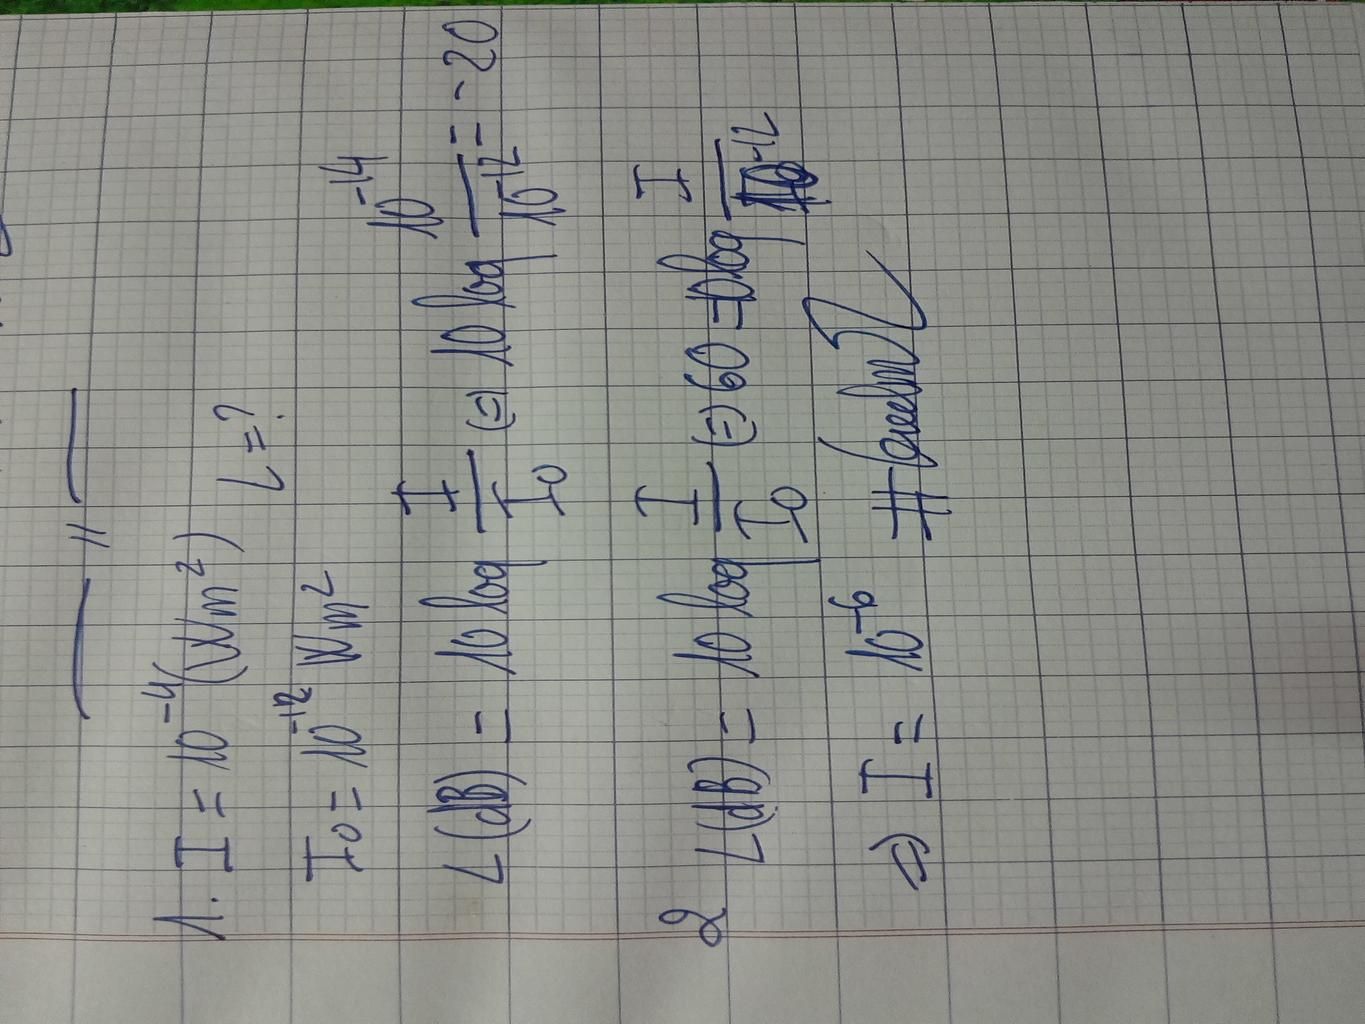 1. I = 10⁻⁴ (Wm²) L = ?
I₀ = 10⁻¹² Wm²
L(dB) = 10 log I/I₀ (=) 10 log 10⁻¹⁴/10⁻¹² = -20
2 L(dB) = 10 log I/I₀ (=) 60 = 10 log I/10⁻¹²
=) I = 10⁻⁶